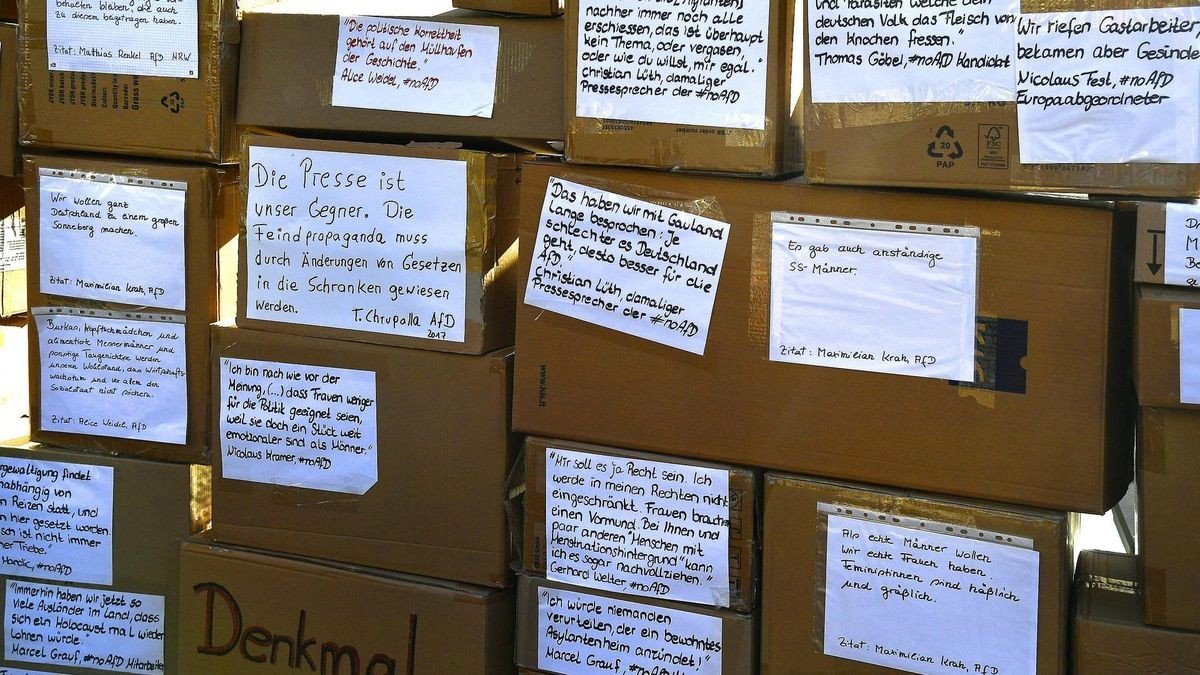 behalten bleiben, die auch
zu diesem beigetragen haben.
Zitat: Mathias Renkel AfD NRW
"Die politische Korrektheit
gehört auf den Müllhaufen
der Geschichte."
Alice Weidel, #noAfD
nachher immer noch alle
erschiessen, das ist überhaupt
kein Thema, oder vergasen,
oder wie du willst, mir egal."
christian Lüth, damaliger
Pressesprecher der #noAfD
und Parasiten welche dem
deutschen Volk das Fleisch von
den Knochen fressen."
Thomas Göbel, #noAfD Kandidat
Wir riefen Gastarbeiter,
bekamen aber Gesinde
Nicolaus Fest, #noAfD
Europaabgeordneter
20
PAP
FSC
Wir wollen ganz
Deutschland zu einem großen
Sonneberg machen.
Zitat: Maximilian Krah, AfD
Die Presse ist
unser Gegner. Die
Feindpropaganda muss
durch Änderungen von Gesetzen
in die Schranken gewiesen
werden.
T. Chrupalla AfD
2017
"Das haben wir mit Gauland
lange besprochen: Je
schlechter es Deutschland
geht, desto besser für die
AfD."
Christian Lüth, damaliger
Pressesprecher der #noAfD
Es gab auch anständige
SS-Männer.
Zitat: Maximilian Krah, AfD
Burkas, Kopftuchmädchen und
alimentierte Messermänner und
sonstige Taugenichtse werden
unseren Wohlstand, das Wirtschafts-
wachstum und vor allem den
Sozialstaat nicht sichern.
Zitat: Alice Weidel, AfD
"Ich bin nach wie vor der
Meinung, (...) dass Frauen weniger
für die Politik geeignet seien,
weil sie doch ein Stück weit
emotionaler sind als Männer."
Nicolaus Kramer, #noAfD
www.kds.lt
rgewaltigung findet
nabhängig von
n Reizen statt, und
n hier gesetzt worden.
sch ist nicht immer
ner Triebe."
#noAfD
"Mir soll es ja Recht sein. Ich
werde in meinen Rechten nicht
eingeschränkt. Frauen brauchen
einen Vormund. Bei Ihnen und
paar anderen "Menschen mit
Menstruationshintergrund" kann
ich es sogar nachvollziehen."
Gerhard Welter, #noAfD
Als echte Männer wollen
wir echte Frauen haben.
Feministinnen sind häßlich
und gräßlich.
Zitat: Maximilian Krah, AfD
"Immerhin haben wir jetzt so
viele Ausländer im Land, dass
sich ein Holocaust mal wieder
lohnen würde."
Marcel Grauf, #noAfD Mitarbeiter
Denkmal
"Ich würde niemanden
verurteilen, der ein bewohntes
Asylantenheim anzündet!"
Marcel Grauf, #noAfD